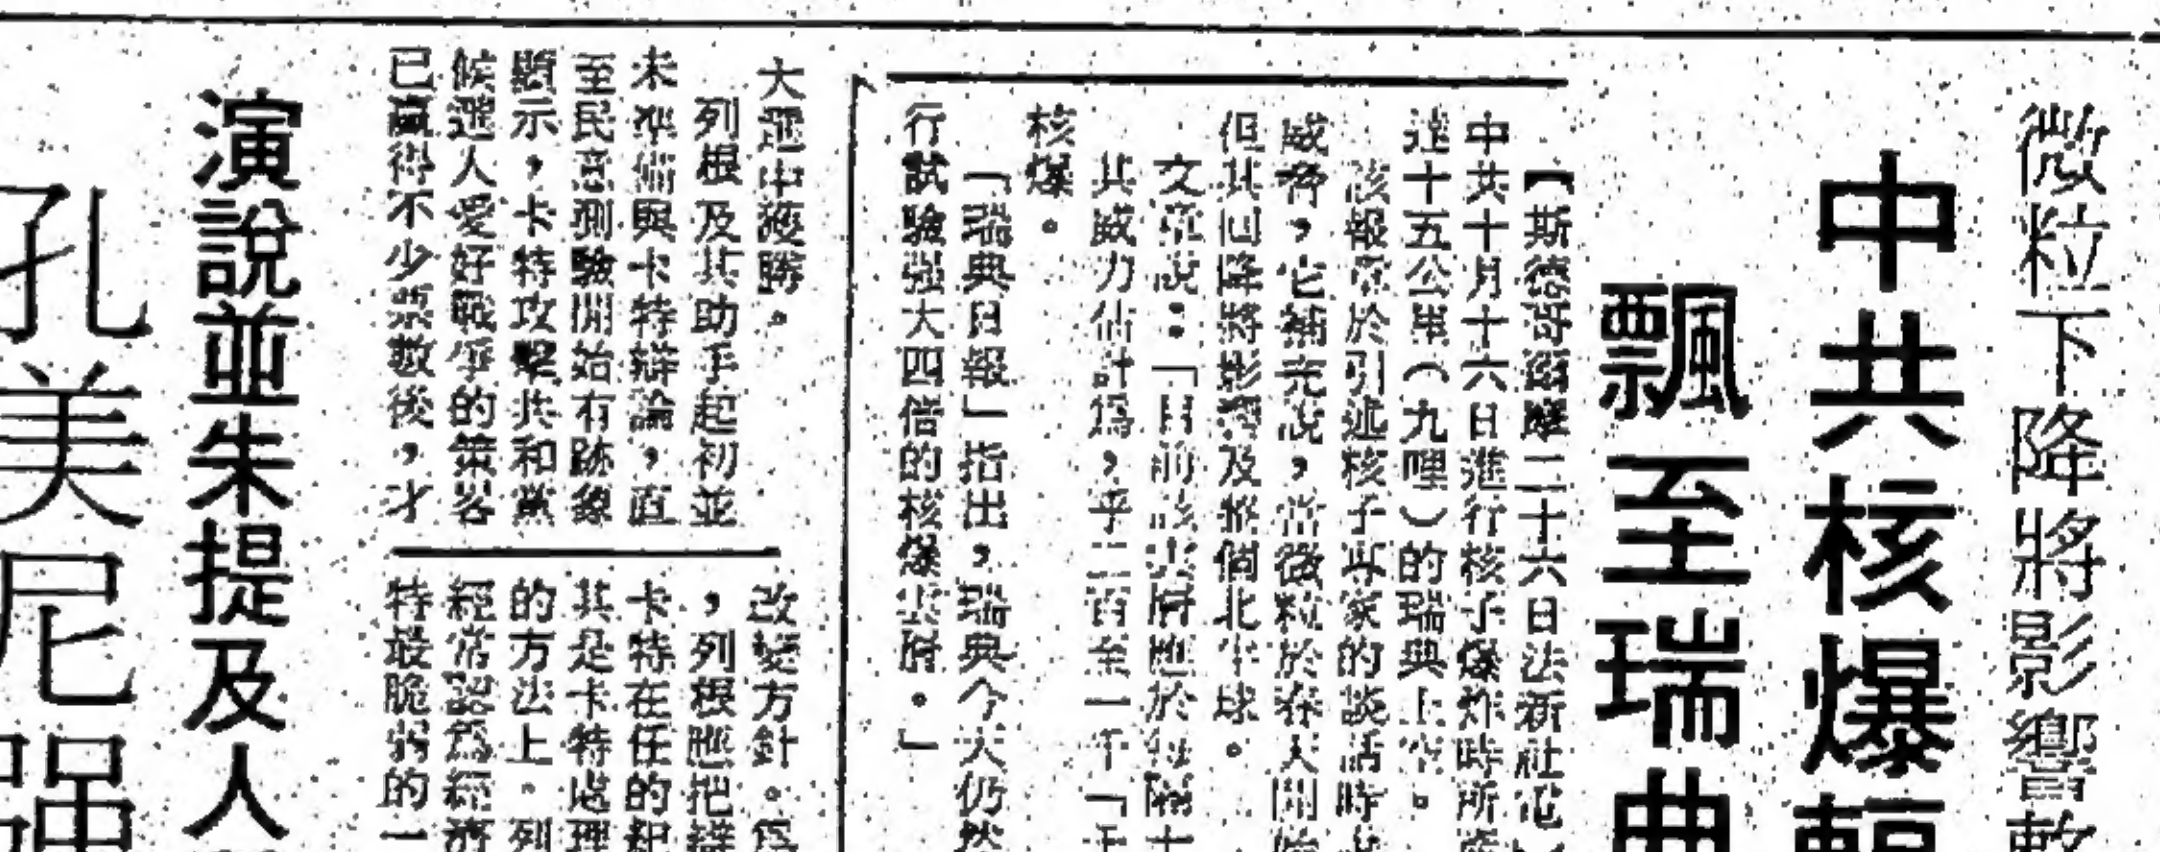 微粒下降將影響整
中共核爆輻
飄至瑞典
【斯德哥爾摩二十六日法新社電】
中共十月十六日進行核子爆炸時所
達十五公里（九哩）的瑞典上空。
該報章於引述核子專家的談話時
威脅，它補充說，當微粒於春天開始
但其回降將影響及整個北半球。
文章說：「目前該雲層應於每隔十
其威力估計爲，乎二百至一千「
核爆。
「瑞典日報」指出，瑞典今天仍然
行試驗强大四倍的核爆雲層。」
大選中獲勝。
列根及其助手起初並
未準備與卡特辯論，直
至民意測驗開始有跡象
顯示，卡特攻擊共和黨
候選人愛好戰爭的策略
已贏得不少票數後，才
改變方針。爲
，列根應把
卡特在任的紀
其是卡特處理
的方法上。列
經常認爲經濟
特最脆弱的一
演說並朱提及人
孔美尼强